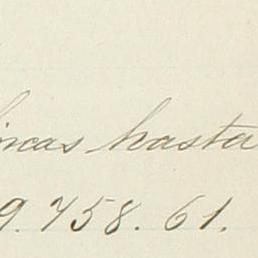 fincas hasta
9.758.61.